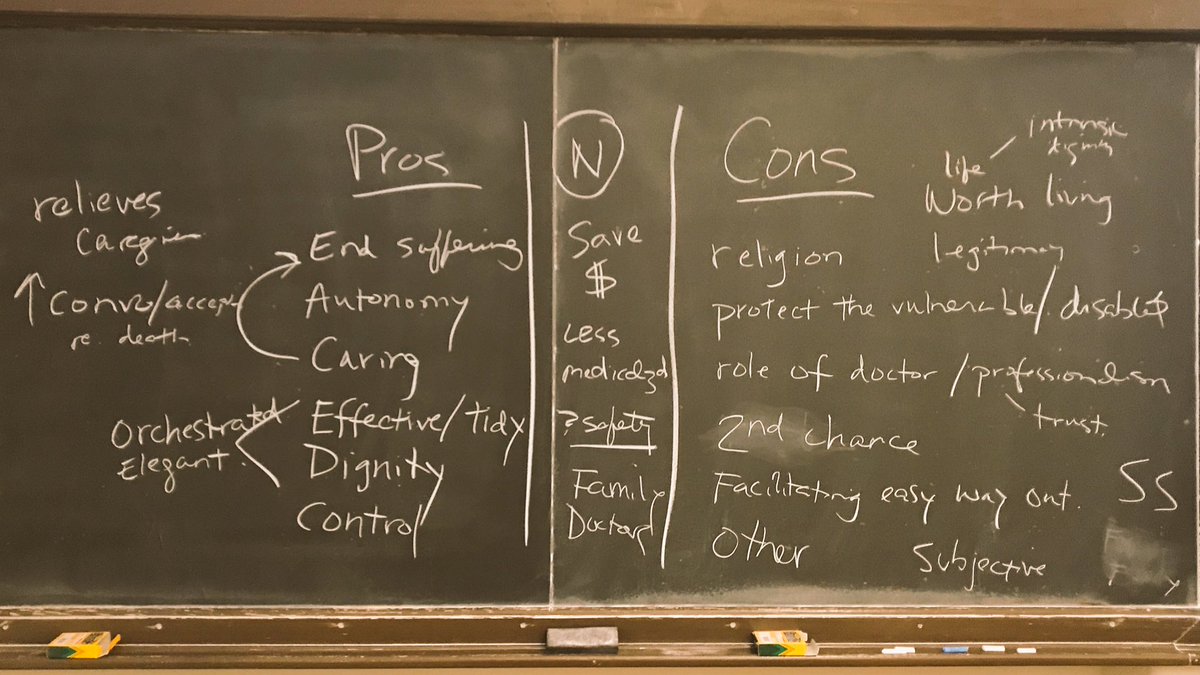 Pros
relieves
End suffering
↑ Convo/accep
re. death
Autonomy
Caring
Orchestrated
Elegant.
Effective/tidy
Dignity
Control
N
Save
$
Less
? safety
Family
Doctors
Cons
intrinsic
life
Worth living
religion
legitimacy
protect the vulnerable/disabled
role of doctor / professionalism
trust.
2nd chance
Facilitating easy way out.
SS
Other
Subjective